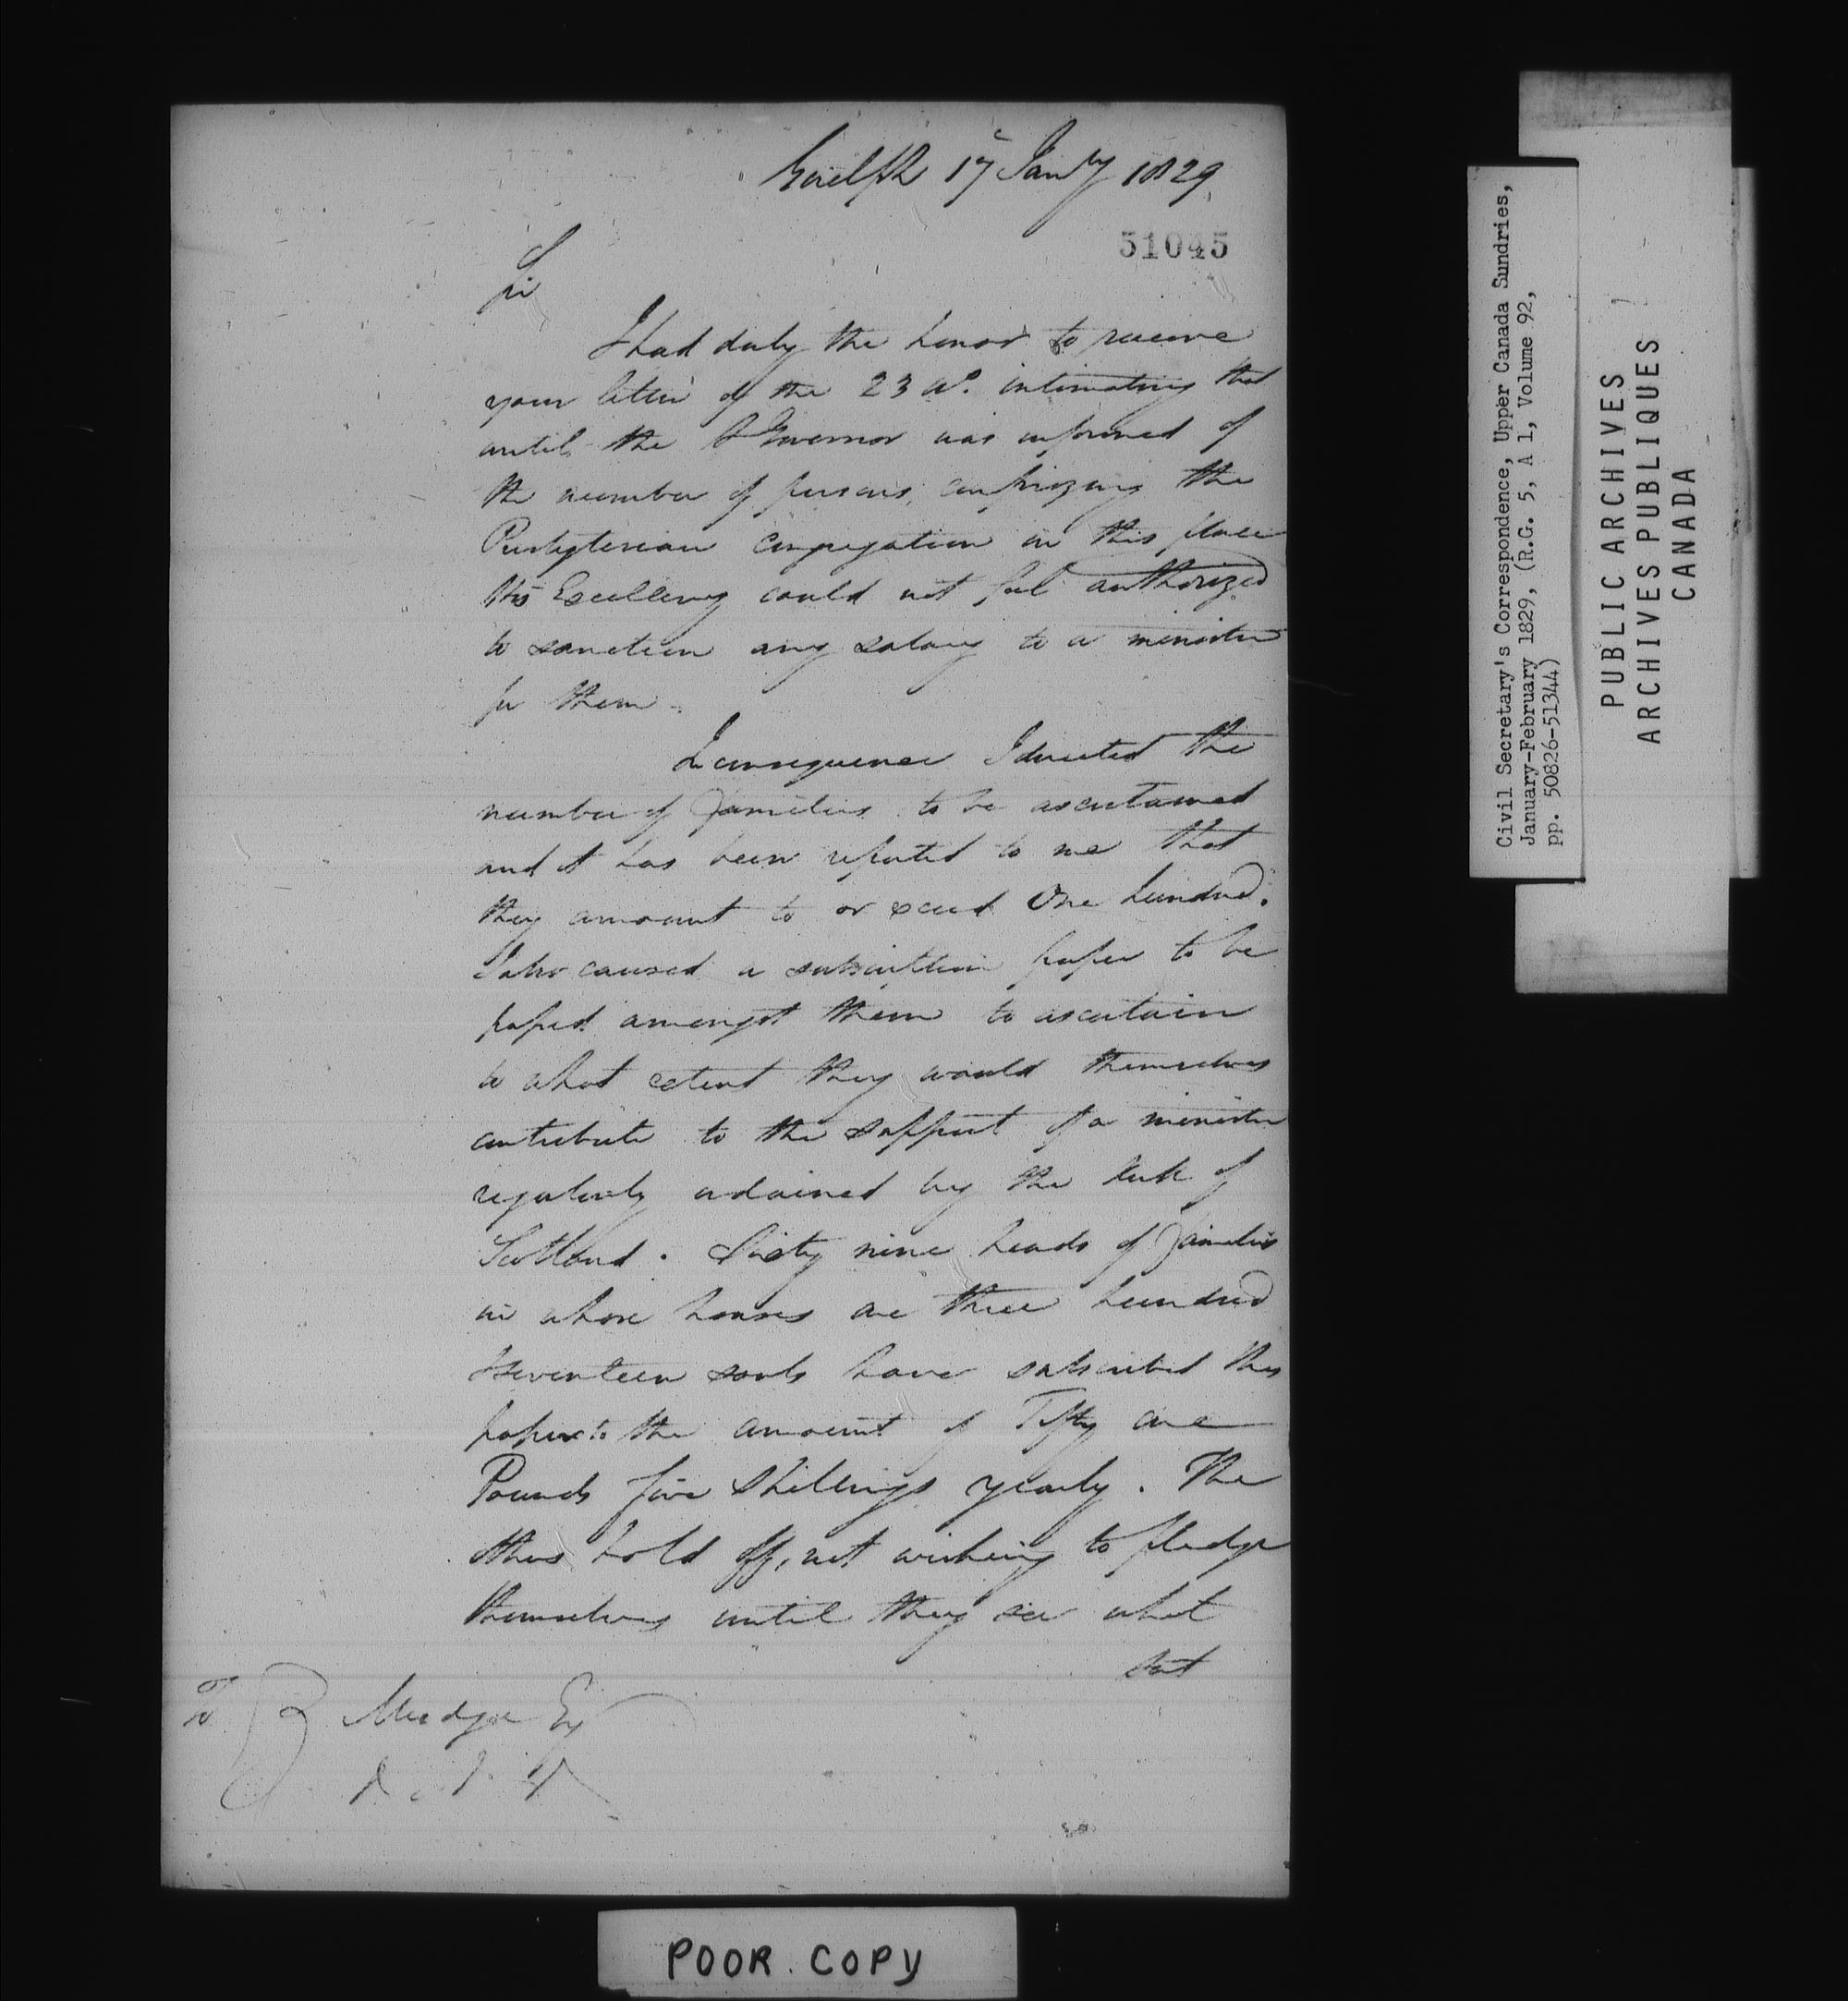 Guelph 17 Jany 1829
51045
Sir
I had duly the honor to receive
your letter of the 23 intimating that
until the Governor was informed of
the number of persons comprizing the
Presbyterian congregation in this place
His Excellency could not feel authorized
to sanction any salary to a minister
for them.
In consequence I directed the
number of families to be ascertained
and it has been reported to me that
they amount to or exceed One hundred.
I also caused a subscription paper to be
passed amongst them to ascertain
to what extent they would themselves
contribute to the support of a minister
regularly ordained by the Kirk of
Scotland. Sixty nine heads of families
in whose houses are three hundred
seventeen souls have subscribed this
paper to the amount of Fifty one
Pounds five Shillings yearly. The
others hold off, not wishing to pledge
themselves until they see what
To Z Mudge Esq
POOR COPY
Civil Secretary's Correspondence, Upper Canada Sundries,
January-February 1829, (R.G. 5, A 1, Volume 92,
pp. 50826-51344)
PUBLIC ARCHIVES
ARCHIVES PUBLIQUES
CANADA